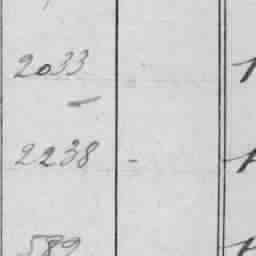 2033
—
2238 -
589